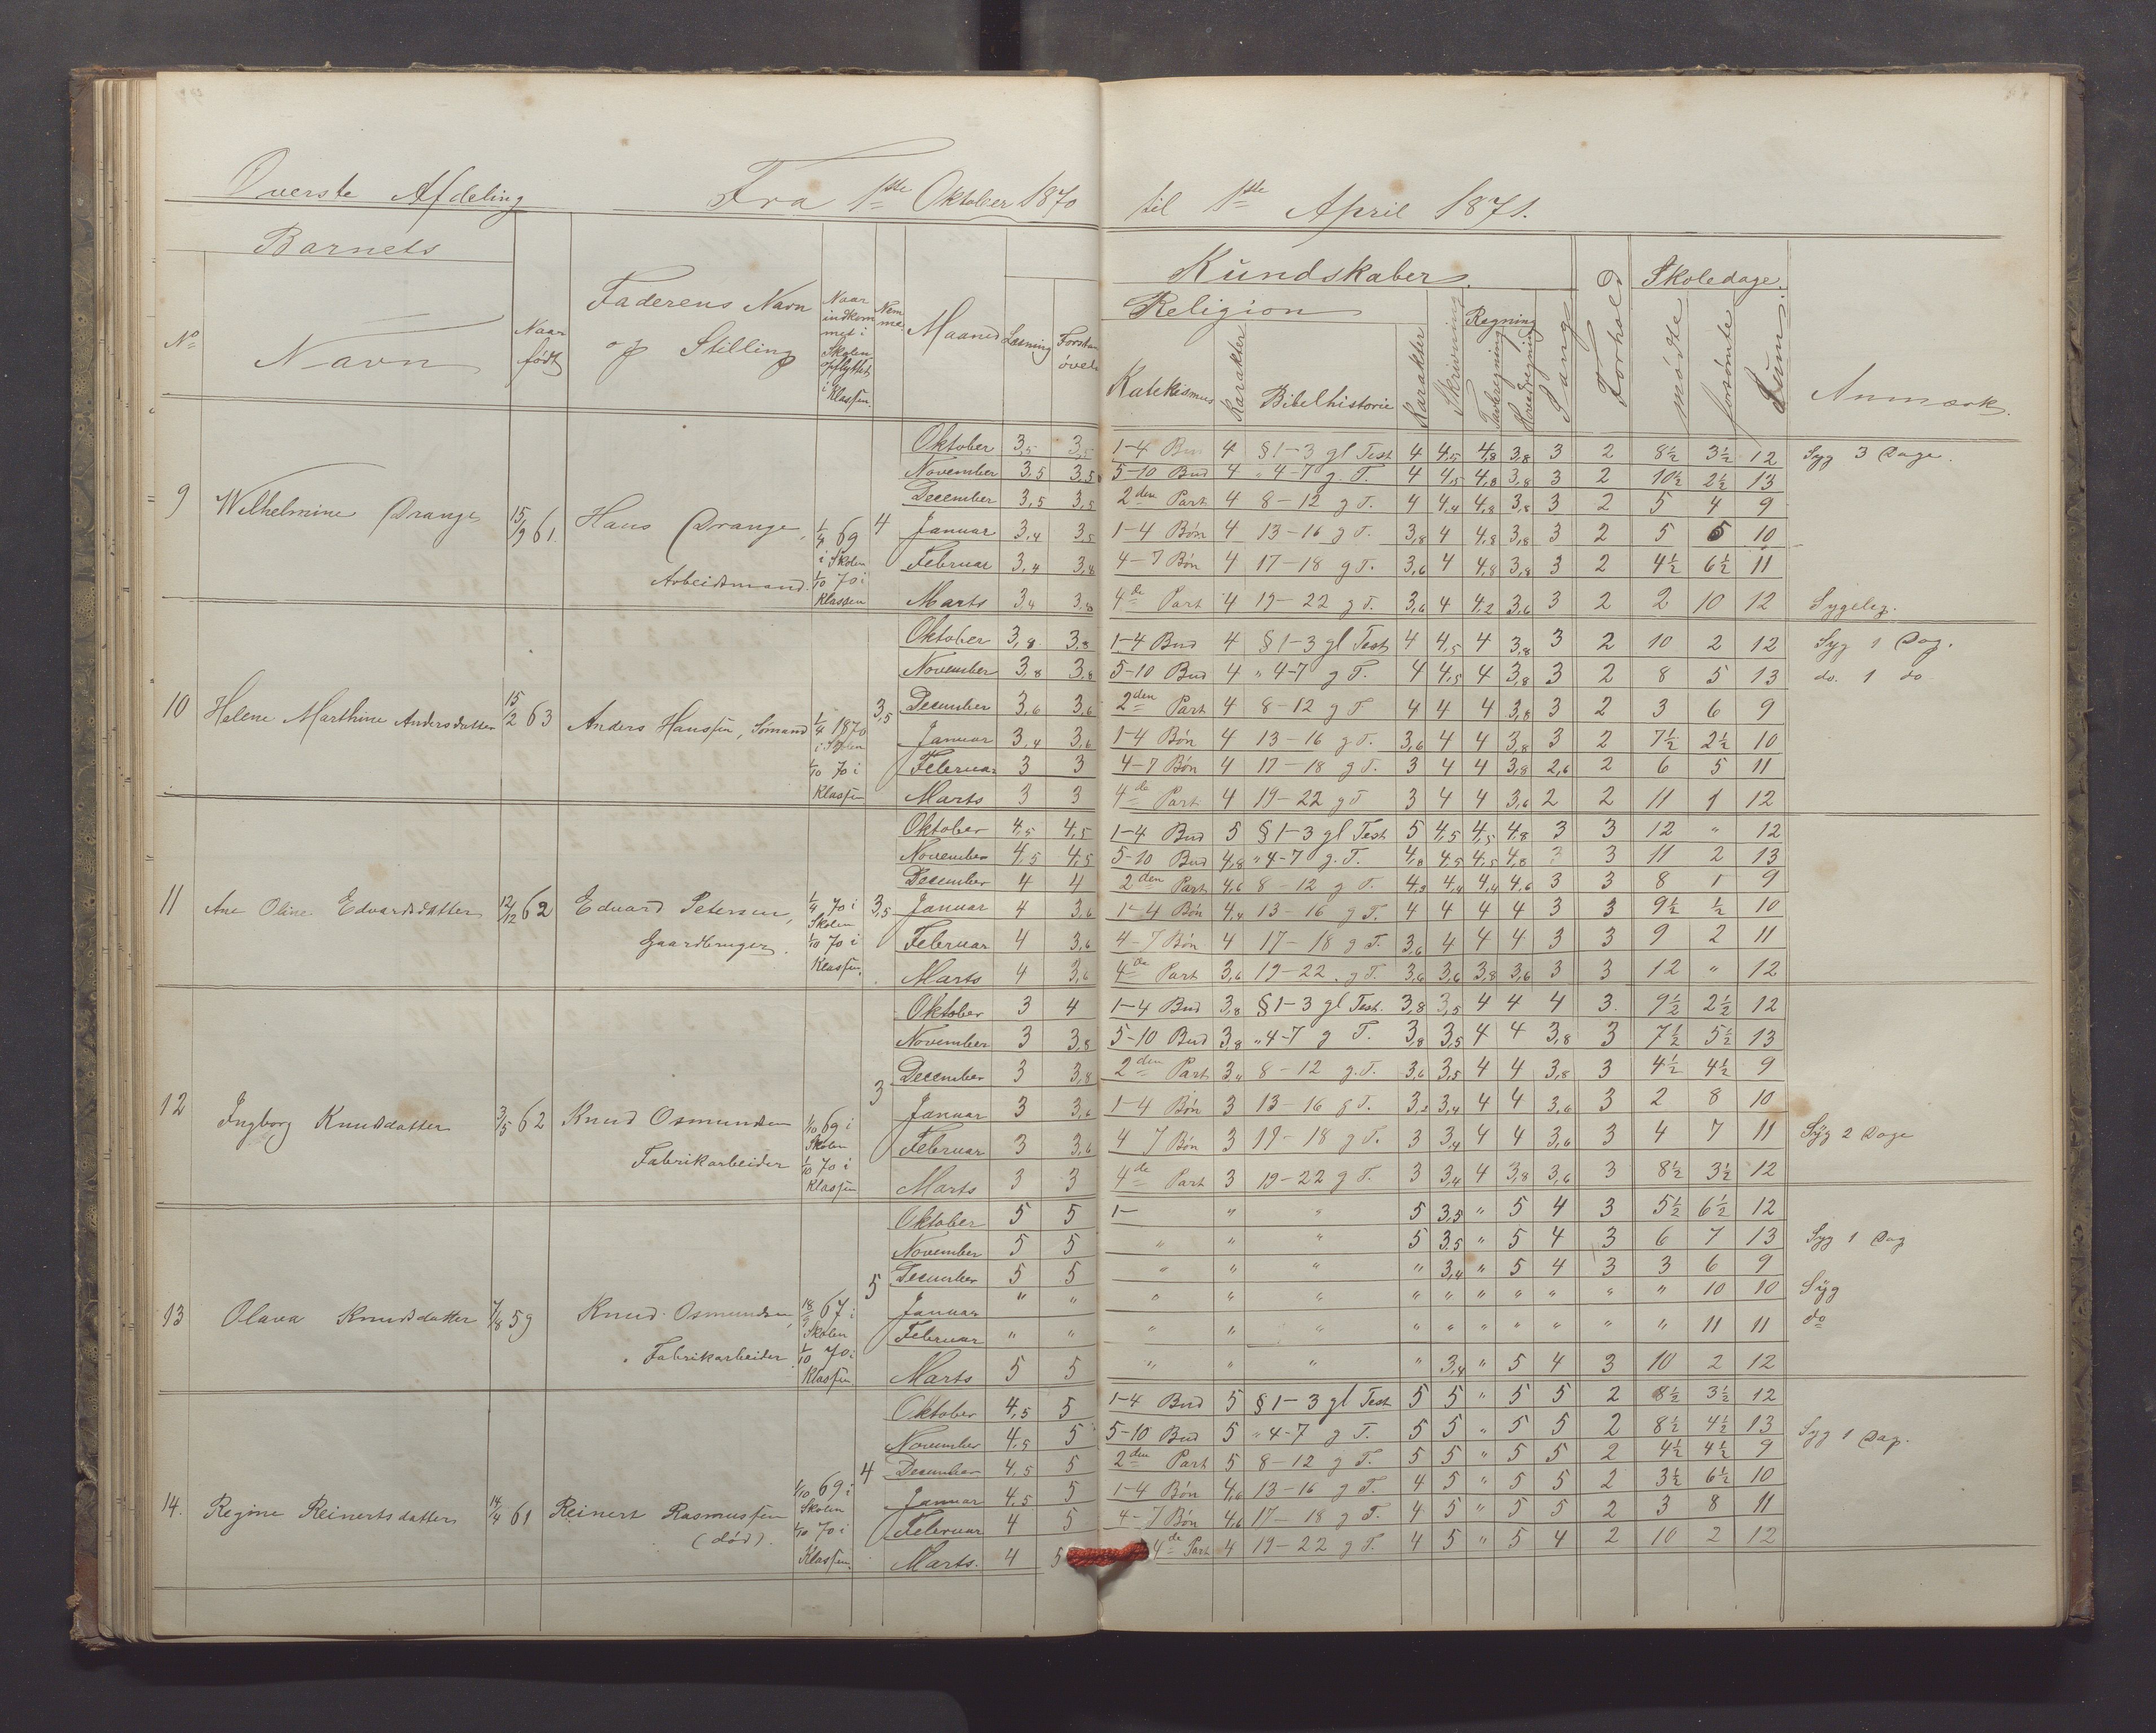 Overste Afdeling Fra 1ste Oktober 1870 til 1ste April 1871.
Barnets
No Navn Naar født Faderens Navn og Stilling Naar indkommet i Skolen opflyttet i Klassen Nemme Maaned Læsning
Kundskaber. Forhold Skoledage.
Religion Skrivning Regning Sang
Katekismus Karakter Bibelhistorie Karakter Tavleregning Hovedregning mødte forsømte Sum Anmærk.
9 Wilhelmine Drange 15/9 61. Hans Drange, Arbeidsmand. 1/4 69 i Skolen 1/10 70 i Klassen 4
Oktober 3,5 3,5 1-4 Bud 4 §1-3 gl Test 4 4,5 4,8 3,8 3 2 8½ 3½ 12 Syg 3 Dage.
November 3,5 3,5 5-10 Bud 4 " 4-7 g. T. 4 4,5 4,8 3,8 3 2 10½ 2½ 13
December 3,5 3,5 2den Part 4 8-12 g T. 4 4,4 4,8 3,8 3 2 5 4 9
Januar 3,4 3,5 1-4 Bøn 4 13-16 g T. 3,8 4 4,8 3,8 3 2 5 5 10
Februar 3,4 3,8 4-7 Bøn 4 17-18 g T. 3,6 4 4,8 3,8 3 2 4½ 6½ 11
Marts 3,4 3,8 4de Part 4 19-22 g T. 3,6 4 4,2 3,6 3 2 2 10 12 Sygelig.
10 Helene Marthine Andersdatter 15/2 63 Anders Hanssen, Sømand 1/4 1870 i Skolen 1/10 70 i Klassen 3,5
Oktober 3,8 3,8 1-4 Bud 4 §1-3 gl Test 4 4,5 4 3,8 3 2 10 2 12 Syg 1 Dag.
November 3,8 3,8 5-10 Bud 4 " 4-7 g T. 4 4,5 4 3,8 3 2 8 5 13 do. 1 do
December 3,6 3,6 2den Part 4 8-12 g T 4 4 4 3,8 3 2 3 6 9
Januar 3,4 3,6 1-4 Bøn 4 13-16 g T. 3,6 4 4 3,8 3 2 7½ 2½ 10
Februar 3 3 4-7 Bøn 4 17-18 g T. 3 4 4 3,8 2,6 2 6 5 11
Marts 3 3 4de Part 4 19-22 g T 3 4 4 3,6 2 2 11 1 12
11 Ane Oline Edvardsdatter 12/12 62 Edvard Petersen, Gaardbruger. 1/4 70 i Skolen 1/10 70 i Klassen. 3,5
Oktober 4,5 4,5 1-4 Bud 5 §1-3 gl Test 5 4,5 4,5 4,8 3 3 12 " 12
November 4,5 4,5 5-10 Bud 4,8 " 4-7 g. T. 4,8 4,5 4,5 4,8 3 3 11 2 13
December 4 4 2den Part 4,6 8-12 g T. 4,2 4,4 4,4 4,6 3 3 8 1 9
Januar 4 3,6 1-4 Bøn 4,4 13-16 g T. 4 4 4 4 3 3 9½ ½ 10
Februar 4 3,6 4-7 Bøn 4 17-18 g T. 3,6 4 4 4 3 3 9 2 11
Marts 4 3,6 4de Part 3,6 19-22 g T. 3,6 3,6 3,8 3,6 3 3 12 " 12
12 Ingborg Knudsdatter 3/5 62 Knud Osmundsen Fabrikarbeider 1/10 69 i Skolen 1/10 70 i Klassen 3
Oktober 3 4 1-4 Bud 3,8 §1-3 gl Test. 3,8 3,5 4 4 4 3. 9½ 2½ 12
November 3 3,8 5-10 Bud 3,8 " 4-7 g T. 3,8 3,5 4 4 3,8 3 7½ 5½ 13
December 3 3,8 2den Part 3,4 8-12 g. T. 3,6 3,5 4 4 3,8 3 4½ 4½ 9
Januar 3 3,6 1-4 Bøn 3 13-16 g T. 3,2 3,4 4 4 3,6 3 2 8 10
Februar 3 3,6 4 7 Bøn 3 17-18 g T. 3 3,4 4 4 3,6 3 4 7 11 Syg 2 Dage
Marts 3 3 4de Part 3 19-22 g T. 3 3,4 4 3,8 3,6 3 8½ 3½ 12
13 Olava Knudsdatter 7/8 59 Knud Osmundsen, Fabrikarbeider. 18/9 67 i Skolen 1/10 70 i Klassen 5
Oktober 5 5 1- " " 5 3,5 " 5 4 3 5½ 6½ 12
November 5 5 " " " 5 3,5 " 5 4 3 6 7 13 Syg 1 Dag
December 5 5 " " " " 3,4 " 5 4 3 3 6 9
Januar " " " " " " " " " " " " 10 10 Syg
Februar " " " " " " " " " " " " 11 11 do
Marts 5 5 " " " " 3,4 " 5 4 3 10 2 12
14. Regine Reinertsdatter 14/4 61 Reinert Rasmussen (død). 1/10 69 i Skolen 1/10 70 i Klassen. 4
Oktober 4,5 5 1-4 Bud 5 §1-3 gl Test 5 5 " 5 5 2 8½ 3½ 12
November 4,5 5 5-10 Bud 5 " 4-7 g T. 5 5 " 5 5 2 8½ 4½ 13 Syg 1 Dag.
December 4,5 5 2den Part 5 8-12 g T. 5 5 " 5 5 2 4½ 4½ 9
Januar 4,5 5 1-4 Bøn 4,6 13-16 g T. 4 5 " 5 5 2 3½ 6½ 10
Februar 4 5 4-7 Bøn 4,6 17-18 g T. 4 5 " 5 5 2 3 8 11
Marts. 4 5 4de Part 4 19-22 g T. 4 5 " 5 4 2 10 2 12